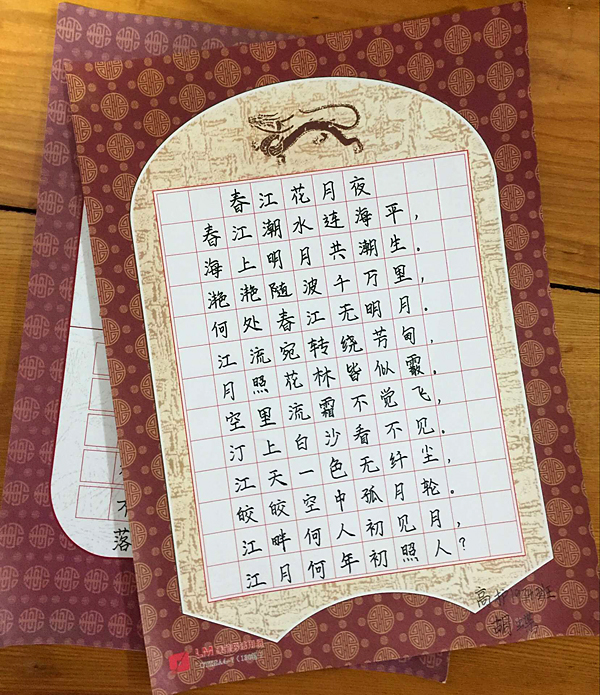 春江花月夜
春江潮水连海平，
海上明月共潮生。
滟滟随波千万里，
何处春江无明月。
江流宛转绕芳甸，
月照花林皆似霰。
空里流霜不觉飞，
汀上白沙看不见。
江天一色无纤尘，
皎皎空中孤月轮。
江畔何人初见月，
江月何年初照人？
落